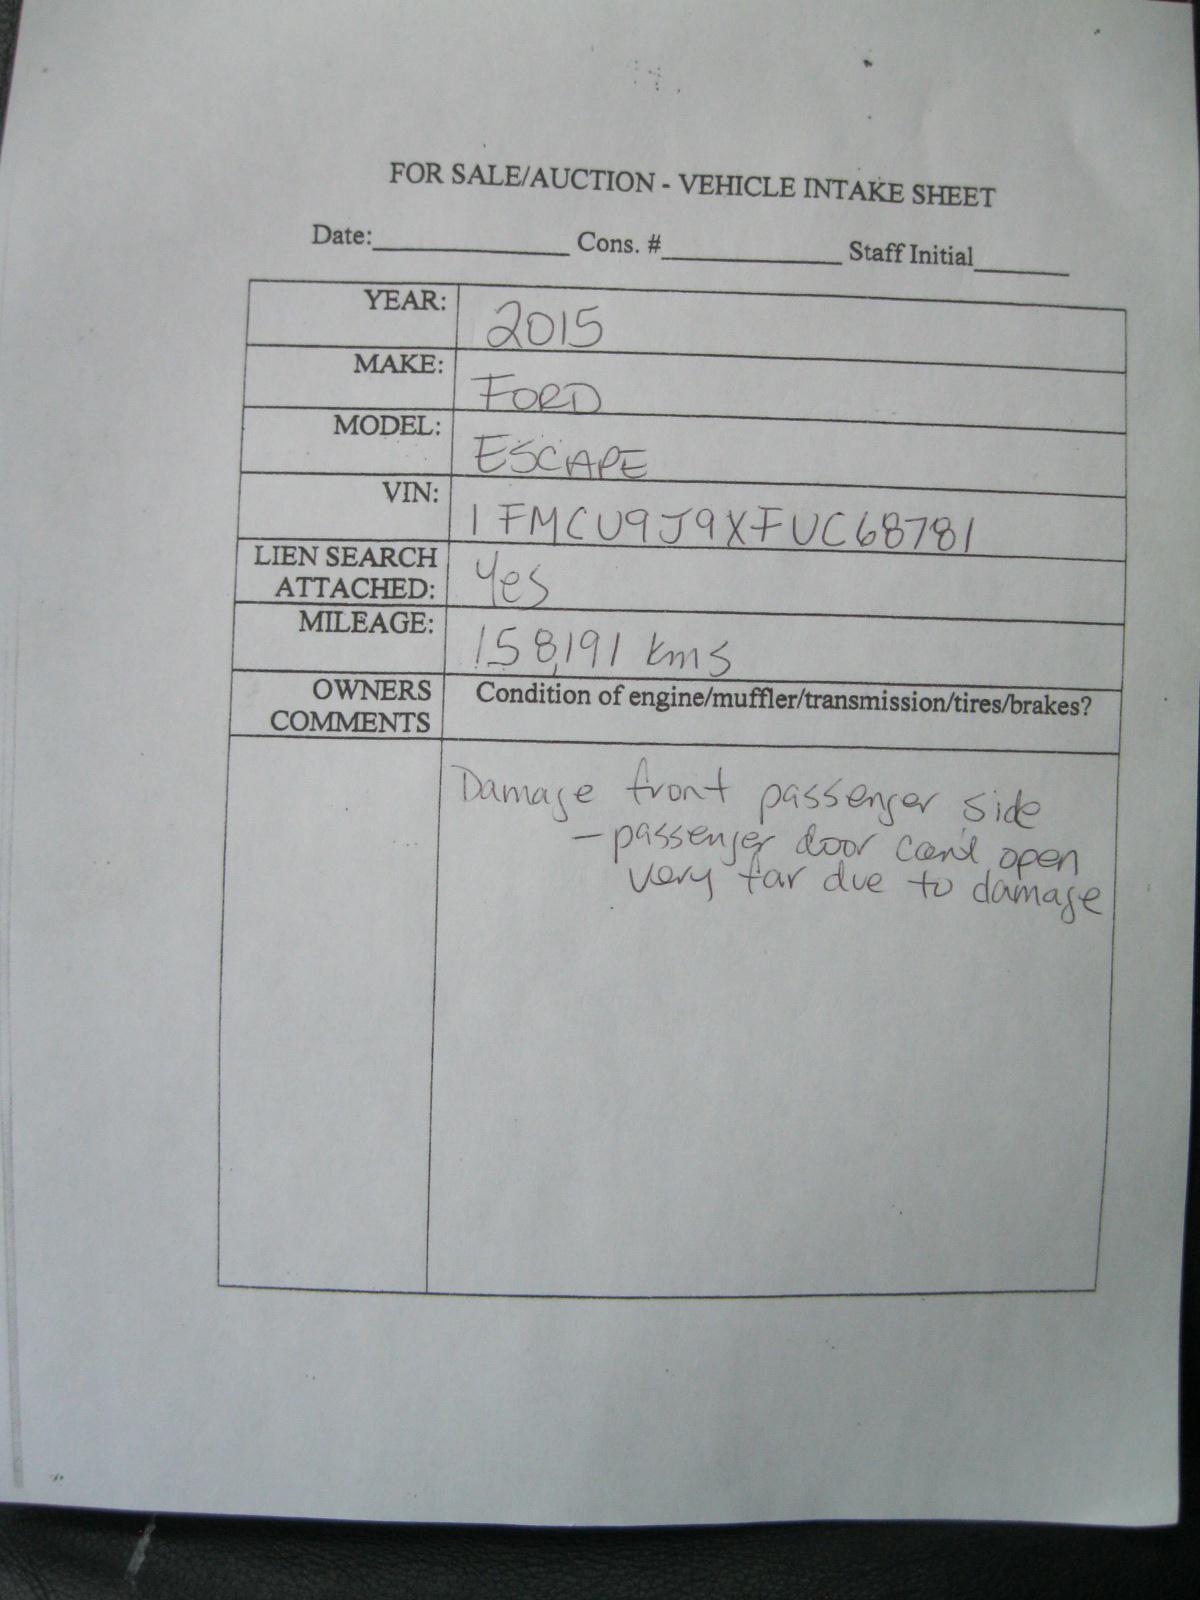 FOR SALE/AUCTION - VEHICLE INTAKE SHEET
Date:______________ Cons. #_____________ Staff Initial_______
YEAR: 2015
MAKE: FORD
MODEL: ESCAPE
VIN: 1FMCU9J9XFUC68781
LIEN SEARCH
ATTACHED: Yes
MILEAGE: 158,191 kms
OWNERS
COMMENTS
Condition of engine/muffler/transmission/tires/brakes?
Damage front passenger side
- passenger door can't open
very far due to damage